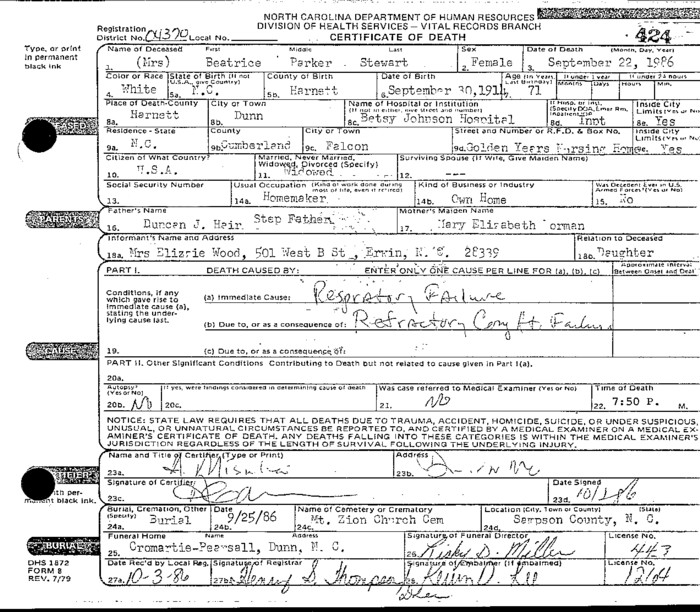 NORTH CAROLINA DEPARTMENT OF HUMAN RESOURCES
DIVISION OF HEALTH SERVICES – VITAL RECORDS BRANCH
Registration District No. 04370 Local No. CERTIFICATE OF DEATH 424
Type, or print in permanent black ink
Name of Deceased First Middle Last Sex Date of Death (Month, Day, Year)
1. (Mrs) Beatrice Parker Stewart 2. Female 3. September 22, 1986
Color or Race State of Birth (If not U.S.A., give Country) County of Birth Date of Birth Age (In Years, Last Birthday) If under 1 year If under 24 hours
Months Days Hours Min.
4. White 5a. N.C. 5b. Harnett 6. September 30, 1914 7. 71
Place of Death-County City or Town Name of Hospital or Institution (If not in either, give street and number) If Hosp. or Inst. (Specify DOA, Emer Rm, Inpatient) Inside City Limits (Yes or No)
8a. Harnett 8b. Dunn 8c. Betsy Johnson Hospital 8d. Inpt 8e. Yes
Residence - State County City or Town Street and Number or R.F.D. & Box No. Inside City Limits (Yes or No)
9a. N.C. 9b. Cumberland 9c. Falcon 9d. Golden Years Nursing Home 9e. Yes
Citizen of What Country? Married, Never Married, Widowed, Divorced (Specify) Surviving Spouse (If Wife, Give Maiden Name)
10. U.S.A. 11. Widowed 12. ---
Social Security Number Usual Occupation (Kind of work done during most of life, even if retired) Kind of Business or Industry Was Decedent Ever in U.S. Armed Forces? (Yes or No)
13. 14a. Homemaker 14b. Own Home 15. No
PARENTS
Father's Name Mother's Maiden Name
16. Duncan J. Hair Step Father 17. Mary Elizabeth
Informant's Name and Address Relation to Deceased
18a. Mrs Elizzie Wood, 501 West B St., Erwin, N. C. 28339 18b. Daughter
PART I. DEATH CAUSED BY: ENTER ONLY ONE CAUSE PER LINE FOR (a), (b), (c) Approximate Interval Between Onset and Death
Conditions, if any which gave rise to immediate cause (a), stating the under-lying cause last.
(a) Immediate Cause: Respratory Failure
(b) Due to, or as a consequence of: Refractory Cong Ht. Failure
CAUSE
19. (c) Due to, or as a consequence of:
PART II. Other Significant Conditions Contributing to Death but not related to cause given in Part I(a).
20a.
Autopsy? (Yes or No) If yes, were findings considered in determining cause of death Was case referred to Medical Examiner (Yes or No) Time of Death
20b. No 20c. 21. No 22. 7:50 P. M.
NOTICE: STATE LAW REQUIRES THAT ALL DEATHS DUE TO TRAUMA, ACCIDENT, HOMICIDE, SUICIDE, OR UNDER SUSPICIOUS,
UNUSUAL, OR UNNATURAL CIRCUMSTANCES BE REPORTED TO, AND CERTIFIED BY A MEDICAL EXAMINER ON A MEDICAL EX-
AMINER'S CERTIFICATE OF DEATH. ANY DEATHS FALLING INTO THESE CATEGORIES IS WITHIN THE MEDICAL EXAMINER'S
JURISDICTION REGARDLESS OF THE LENGTH OF SURVIVAL FOLLOWING THE UNDERLYING INJURY.
Name and Title of Certifier (Type or Print) Address
23a. 23b. Dunn NC
Signature of Certifier Date Signed
23c. 23d. 10/1/86
black ink.
Burial, Cremation, Other (Specify) Date Name of Cemetery or Crematory Location (City, Town or County) (State)
24a. Burial 24b. 9/25/86 24c. Mt. Zion Church Cem 24d. Sampson County, N. C.
BURIAL
Funeral Home Name Address Signature of Funeral Director License No.
25. Cromartie-Pearsall, Dunn, N. C. 26. Ricky D. Miller 443
DHS 1872
FORM 8
REV. 7/79
Date Rec'd by Local Reg. Signature of Registrar Signature of Embalmer (if embalmed) License No.
27a. 10-3-86 27b. Henry S. Thompson 28. Lee 1264